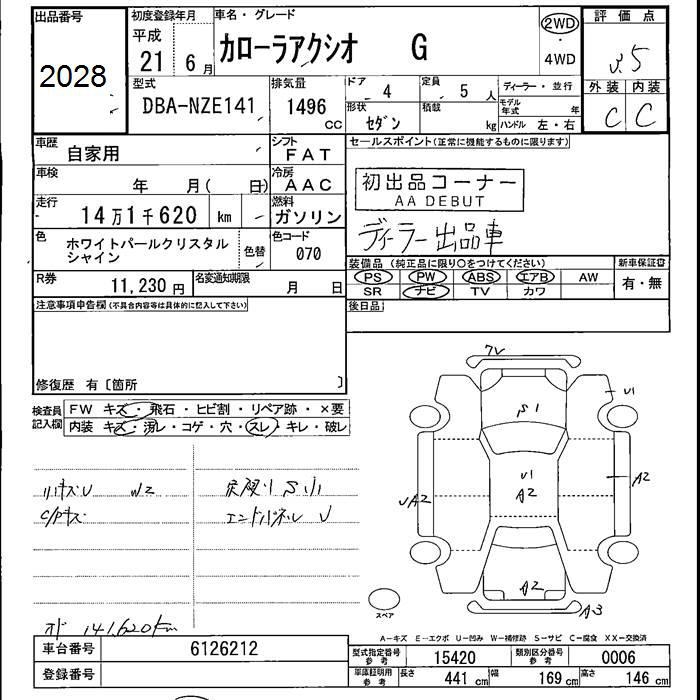 出品番号
2028
初度登録年月
平成
21 6月
車名・グレード
カローラアクシオ G
2WD
・
4WD
評価点
3.5
外装 内装
C C
型式
DBA-NZE141
排気量
1496
CC
ドア
4
定員
5 人
形状
セダン
積載
kg
ディーラー・並行
モデル年式 年
ハンドル 左・右
車歴
自家用
シフト
FAT
車検
年 月( 日)
冷房
AAC
走行
14万1千620 km
燃料
ガソリン
色
ホワイトパールクリスタル
シャイン
色替
色コード
070
R券
11,230円
名変通知期限
月 日
セールスポイント(正常に機能するものに限ります)
初出品コーナー
AA DEBUT
ディーラー出品車
装備品(純正品に限り○をつけてください)
新車保証書
PS PW ABS エアB AW
SR ナビ TV カワ
有・無
後日品
注意事項申告欄(不具合内容等は具体的に記入して下さい)
修復歴 有〔箇所 〕
検査員
記入欄
FW キズ・飛石・ヒビ割・リペア跡・×要
内装 キズ・汚レ・コゲ・穴・スレ・キレ・破レ
リアキズU W2
C/Pキズ
床廻り S小
エンドパネル U
オド 141,620km
7V
S1
U1
U1
A2
A2
UA2
A2
A3
スペア
A-キズ E-エクボ U-凹み W-補修跡 S-サビ C-腐食 XX-交換済
車台番号
6126212
登録番号
型式指定番号
参考
15420
類別区分番号
参考
0006
車庫証明用
参考
長さ
441 cm
幅
169 cm
高さ
146 cm